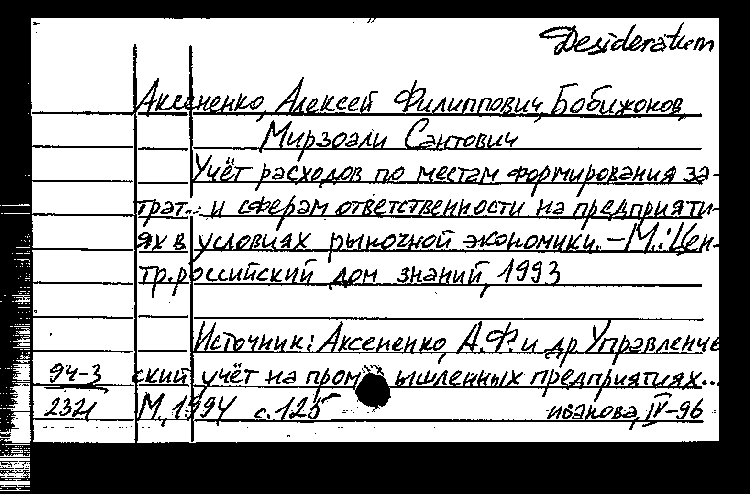 Desideratum
Аксененко, Алексей Филиппович, Бобижонов,
Мирзоали Саитович
Учёт расходов по местам формирования за-
трат.. и сферам ответственности на предприяти-
ях в условиях рыночной экономики. - М.: Цен-
тр. российский дом знаний, 1993
Источник: Аксененко, А.Ф. и др Управленче
94-3 ский учёт на промышленных предприятиях...
2321 М, 1994 с. 125 иванова, IV-96